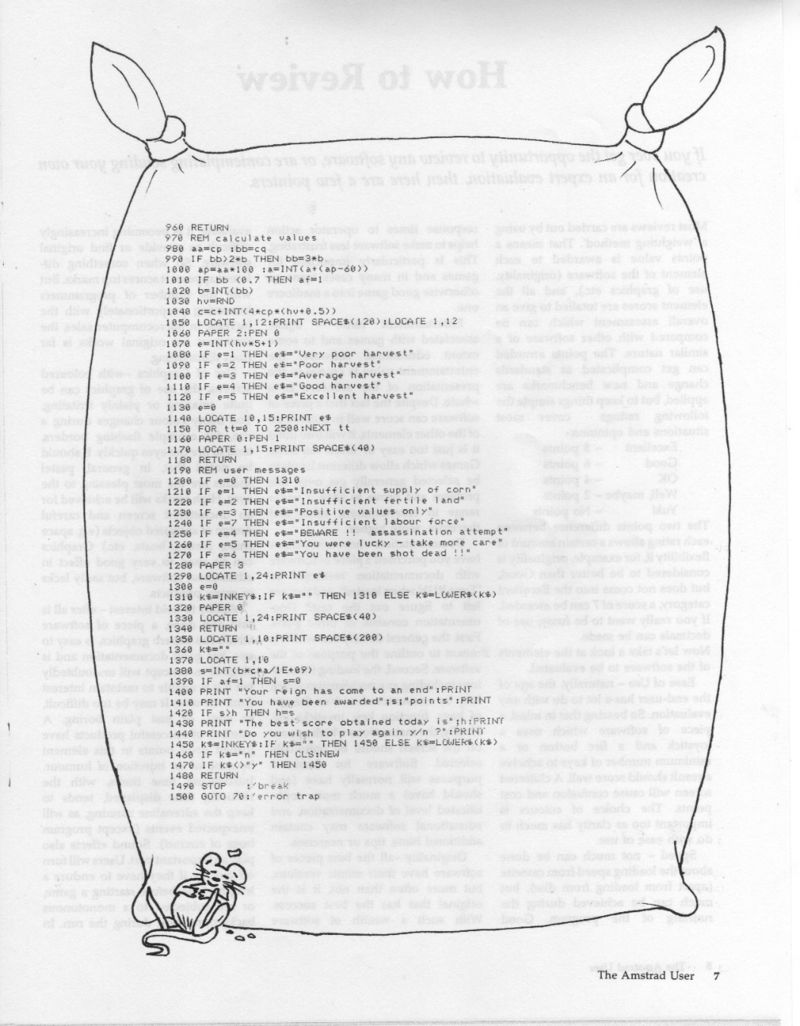 960 RETURN
970 REM calculate values
980 aa=cp :bb=cq
990 IF bb>2*b THEN bb=3*b
1000 ap=aa*100 :a=INT(a+(ap-60))
1010 IF bb <0.7 THEN af=1
1020 b=INT(bb)
1030 hv=RND
1040 c=c+INT(4*cp*(hv+0.5))
1050 LOCATE 1,12:PRINT SPACE$(120):LOCATE 1,12
1060 PAPER 2:PEN 0
1070 e=INT(hv*5+1)
1080 IF e=1 THEN e$="Very poor harvest"
1090 IF e=2 THEN e$="Poor harvest"
1100 IF e=3 THEN e$="Average harvest"
1110 IF e=4 THEN e$="Good harvest"
1120 IF e=5 THEN e$="Excellent harvest"
1130 e=0
1140 LOCATE 10,15:PRINT e$
1150 FOR tt=0 TO 2500:NEXT tt
1160 PAPER 0:PEN 1
1170 LOCATE 1,15:PRINT SPACE$(40)
1180 RETURN
1190 REM user messages
1200 IF e=0 THEN 1310
1210 IF e=1 THEN e$="Insufficient supply of corn"
1220 IF e=2 THEN e$="Insufficient fertile land"
1230 IF e=3 THEN e$="Positive values only"
1240 IF e=7 THEN e$="Insufficient labour force"
1250 IF e=4 THEN e$="BEWARE !!  assassination attempt"
1260 IF e=5 THEN e$="You were lucky - take more care"
1270 IF e=6 THEN e$="You have been shot dead !!"
1280 PAPER 3
1290 LOCATE 1,24:PRINT e$
1300 e=0
1310 k$=INKEY$:IF k$="" THEN 1310 ELSE k$=LOWER$(k$)
1320 PAPER 0
1330 LOCATE 1,24:PRINT SPACE$(40)
1340 RETURN
1350 LOCATE 1,10:PRINT SPACE$(200)
1360 k$=""
1370 LOCATE 1,10
1380 s=INT(b*c*a/1E+09)
1390 IF af=1 THEN s=0
1400 PRINT "Your reign has come to an end":PRINT
1410 PRINT "You have been awarded";s;"points":PRINT
1420 IF s>h THEN h=s
1430 PRINT "The best score obtained today is";h:PRINT
1440 PRINT "Do you wish to play again y/n ?":PRINT
1450 k$=INKEY$:IF k$="" THEN 1450 ELSE k$=LOWER$(k$)
1460 IF k$="n" THEN CLS:NEW
1470 IF k$<>"y" THEN 1450
1480 RETURN
1490 STOP    :'break
1500 GOTO 70:'error trap
The Amstrad User 7